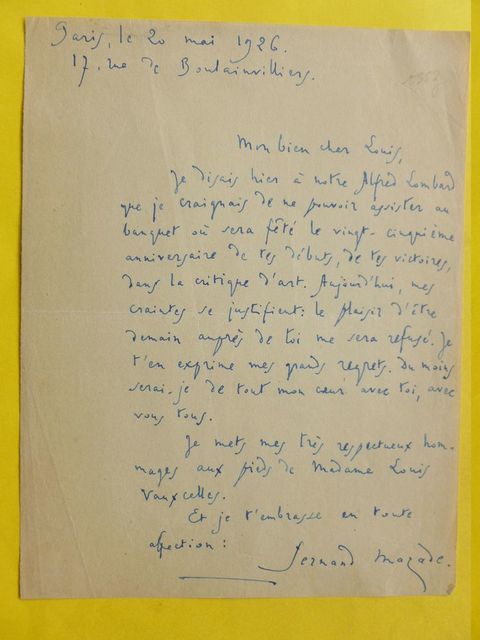 Paris, le 20 mai 1926.
17, rue de Boulainvilliers.
Mon bien cher Louis,
Je disais hier à notre Alfred Lombard
que je craignais de ne pouvoir assister au
banquet où sera fêté le vingt-cinquième
anniversaire de tes débuts, de tes victoires,
dans la critique d'art. Aujourd'hui, mes
craintes se justifient : le plaisir d'être
demain auprès de toi me sera refusé. Je
t'en exprime mes grands regrets. Du moins
serai-je de tout mon cœur avec toi, avec
vous tous.
Je mets mes très respectueux hom-
mages aux pieds de Madame Louis
Vauxcelles.
Et je t'embrasse en toute
affection :
Fernand Mazade.